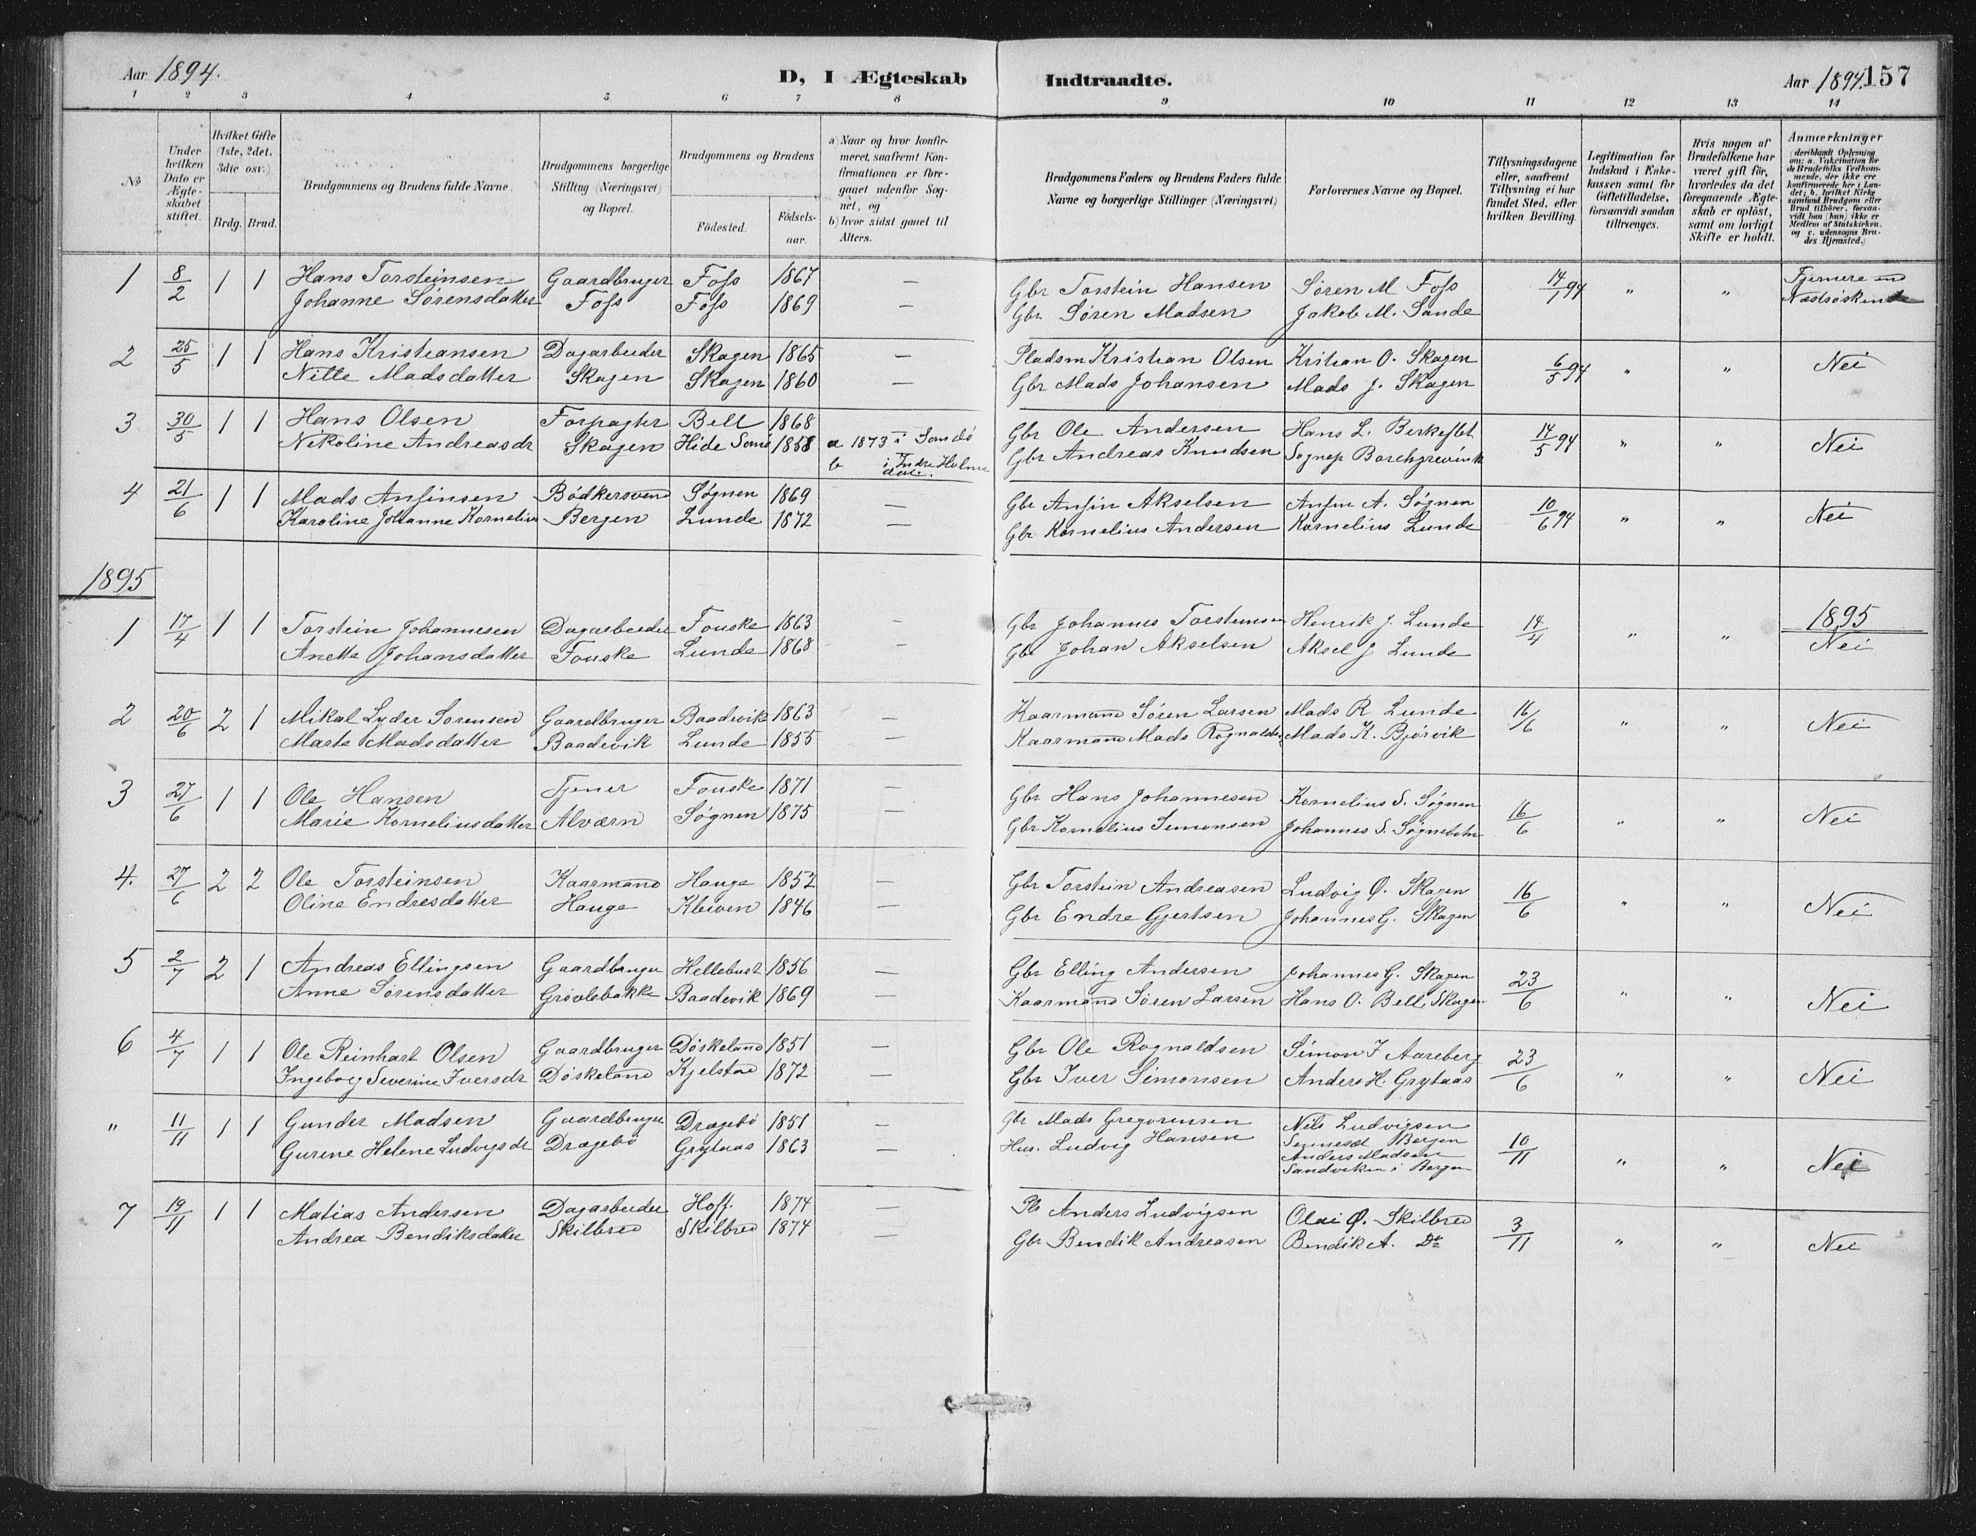 Aar 1894.
D, I Ægteskab
Indtraadte.
Aar 1894. 157
1 2 3 4 5 6 7 8 9 10 11 12 13 14
No
Under hvilken Dato er Ægteskabet stiftet.
Hvilket Gifte (1ste, 2det, 3die osv.)
Brdg. Brud.
Brudgommens og Brudens fulde Navne.
Brudgommens borgerlige Stilling (Næringsvei) og Bopæl.
Brudgommens og Brudens
Fødested.
Fødselsaar.
a) Naar og hvor konfirmeret, saafremt Konfirmationen er foregaaet udenfor Sognet, og
b) hvor sidst gaaet til Alters.
Brudgommens Faders og Brudens Faders fulde Navne og borgerlige Stillinger (Næringsvei)
Forlovernes Navne og Bopæl.
Tillysningsdagene eller, saafremt Tillysning ei har fundet Sted, efter hvilken Bevilling.
Legitimation for Indskud i Enkekassen samt for Giftetilladelse, forsaavidt saadan tiltrænges.
Hvis nogen af Brudefolkene har været gift før, hvorledes da det foregaaende Ægteskab er opløst, samt om lovligt Skifte er holdt.
Anmærkninger (deriblandt Oplysning om: a. Vakcination for de Brudefolks Vedkommende, der ikke ere konfirmerede her i Landet; b. hvilket Kirkesamfund Brudgom eller Brud tilhører, forsaavidt han (hun) ikke er Medlem af Statskirken, og c. udensogns Brudes Hjemsted.)
1 8/2 1 1 Hans Torsteinsen Gaardbruger Foss 1867 — Gbr Torstein Hansen Søren M Foss 14/1 94 " " Fjernere end
Johanne Sørensdatter Foss Foss 1869 Gbr Søren Madsen Jakob M. Sande Næstsøskende
2 25/5 1 1 Hans Kristiansen Dagarbeider Skagen 1865 — Pladsm Kristian Olsen Kristian O. Skagen 6/5 94 " " Nei
Nille Madsdatter Skagen Skagen 1860 — Gbr Mads Johansen Mads J. Skagen
3 30/5 1 1 Hans Olsen Forpagter Bell 1868 Gbr Ole Andersen Hans L. 14/5 94 " " Nei
Nikoline Andreasdr Skagen Hide 1858 a 1873 i Gbr Andreas Knudsen Sognep Borchgrevink
b i Indre Holmedale.
4 21/6 1 1 Mads Anfinsen Bødkersvend Søgnen 1869 — Gbr Anfin Akselsen Anfin A. Søgnen 10/6 94 " " Nei
Karoline Johanne Kornelius Bergen Lunde 1872 — Gbr Kornelius Andersen Kornelius Lunde
1895
1895
1 17/4 1 1 Torstein Johannesen Dagarbeider Fouske 1863 — Gbr Johannes Torsteinsen Henrik J. Lunde 14/4 " " Nei
Anette Johansdatter Fouske Lunde 1868 — Gbr Johan Akselsen Aksel J Lunde
2 20/6 2 1 Mikal Lyder Sørensen Gaardbruger Baadevik 1863 — Kaarmand Søren Larsen Mads R Lunde 16/6 " " Nei
Marte Madsdatter Baadevik Lunde 1855 — Kaarmand Mads Rognalds Mads K. Bjørvik
3 27/6 1 1 Ole Hansen Tjener Fouske 1871 — Gbr Hans Johannesen Kornelius S. Søgnen 16/6 " " Nei
Marie Korneliusdatter Alværn Søgnen 1875 — Gbr Kornelius Simonsen Johannes S.
4. 27/6 2 2 Ole Torsteinsen Kaarmand Hauge 1852 — Gbr Torstein Andreasen Ludvig Ø. Skagen 16/6 " " Nei
Oline Endresdatter Hauge Kleiven 1846 — Gbr Endre Gjertsen Johannes G. Skagen
5 2/7 2 1 Andreas Ellingsen Gaardbruger Hellebust 1856 — Gbr Elling Andersen Johannes G. Skagen 23/6 " " Nei
Anne Sørensdatter Grøvlebakke Baadevik 1869 — Kaarmand Søren Larsen Hans O. Bell, Skagen
6 4/7 1 1 Ole Reinhart Olsen Gaardbruger Døskeland 1851 — Gbr Ole Rognaldsen Simon J Aareberg 23/6 " " Nei
Ingeborg Severine Iversdr Døskeland Kjelstad 1872 — Gbr Iver Simonsen Anders H. Grytaas
" 11/11 1 1 Gunder Madsen Gaardbruger Dragebø 1851 — Gbr Mads Gregoriussen Nils Ludvigsen 10/11 " " Nei
Gurine Helene Ludvigsdr Dragebø Grytaas 1863 — Hus. Ludvig Hansen Bergen
Anders Madsen
Sandviken i Bergen
7 19/11 1 1 Matias Andersen Dagarbeider Hoff. 1874 — Pl Anders Ludvigsen Olai Ø. Skilbred 3/11 " " Nei
Andrea Bendiksdatter Skilbred Skilbred 1874 — Gbr Bendik Andreasen Bendik A. Do